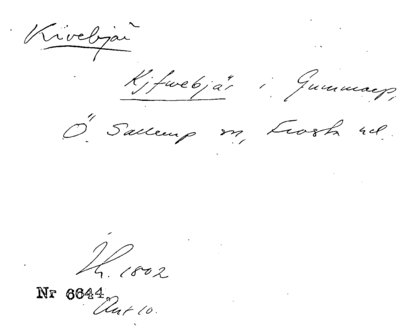 Kivebjär
Kjfwebjär i Gummarp,
Ö. Sallerup sn, Frosta hd.
Th. 1802
Nr 6644
Ant 10.